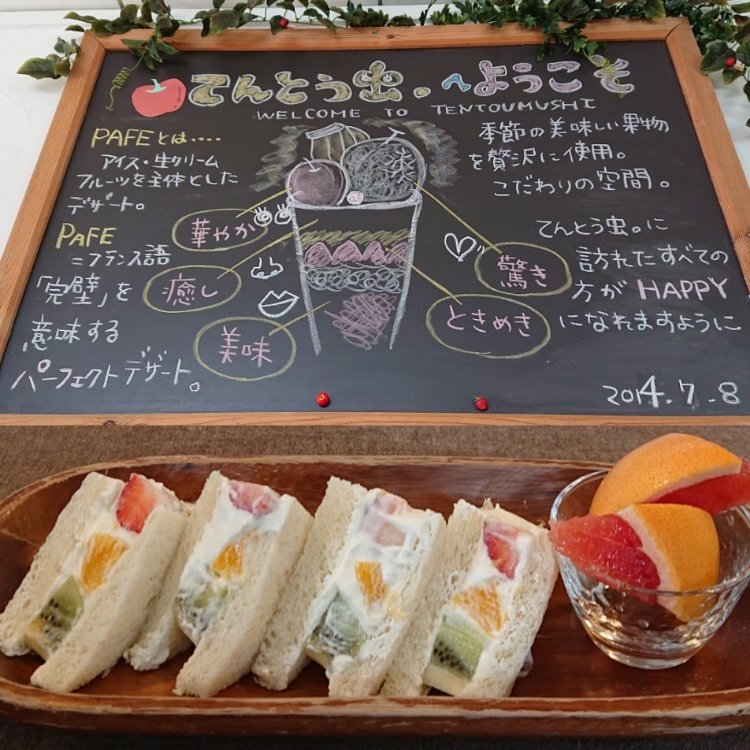 てんとう虫。へようこそ
WELCOME TO TENTOUMUSHI
PAFEとは....
アイス・生クリーム
フルーツを主体とした
デザート。
PAFE
=フランス語
「完壁」を
意味する
パーフェクトデザート。
華やか
癒し
美味
驚き
ときめき
季節の美味しい果物
を贅沢に使用。
こだわりの空間。
てんとう虫。に
訪れたすべての
方がHAPPY
になれますように
2014.7.8